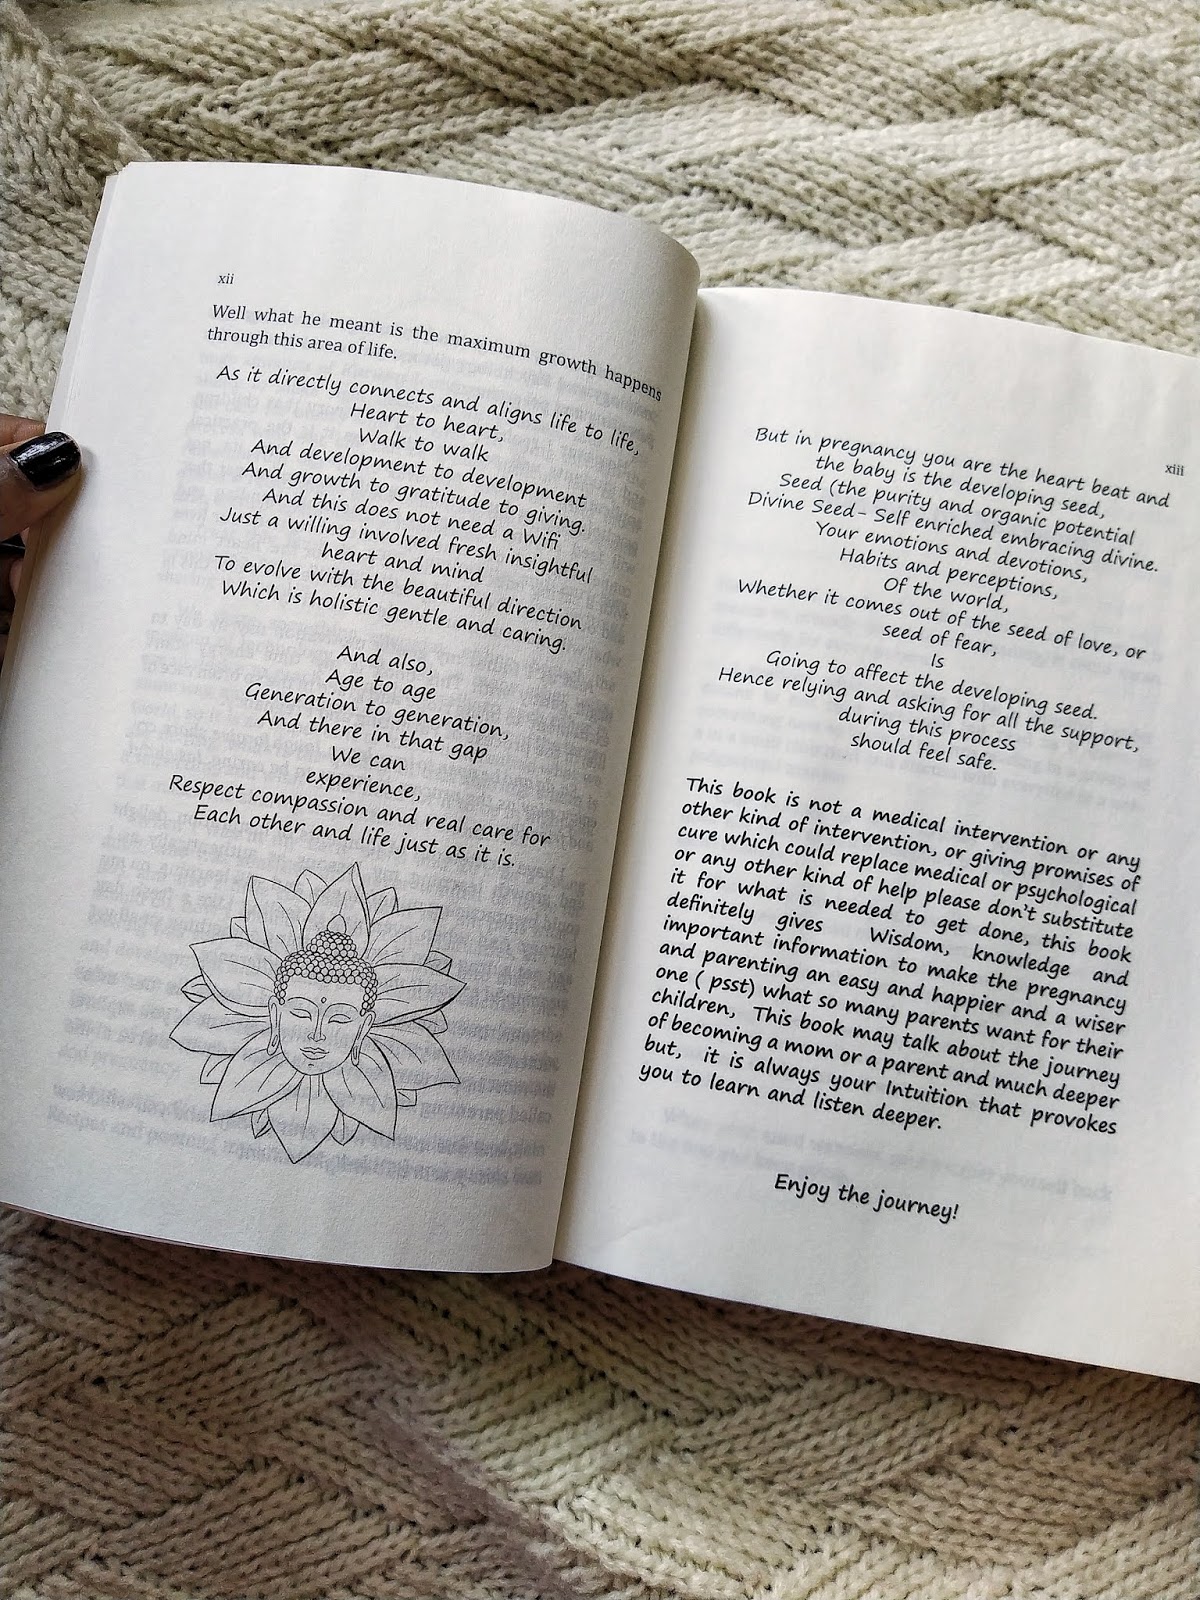 xii
Well what he meant is the maximum growth happens
through this area of life.
As it directly connects and aligns life to life,
Heart to heart,
Walk to walk
And development to development
And growth to gratitude to giving.
And this does not need a Wifi
Just a willing involved fresh insightful
heart and mind
To evolve with the beautiful direction
Which is holistic gentle and caring.
And also,
Age to age
Generation to generation,
And there in that gap
We can
experience,
Respect compassion and real care for
Each other and life just as it is.
xiii
But in pregnancy you are the heart beat and
the baby is the developing seed,
Seed (the purity and organic potential
Divine Seed- Self enriched embracing divine.
Your emotions and devotions,
Habits and perceptions,
Of the world,
Whether it comes out of the seed of love, or
seed of fear,
Is
Going to affect the developing seed.
Hence relying and asking for all the support,
during this process
should feel safe.
This book is not a medical intervention or any
other kind of intervention, or giving promises of
cure which could replace medical or psychological
or any other kind of help please don't substitute
it for what is needed to get done, this book
definitely gives Wisdom, knowledge and
important information to make the pregnancy
and parenting an easy and happier and a wiser
one ( psst) what so many parents want for their
children, This book may talk about the journey
of becoming a mom or a parent and much deeper
but, it is always your Intuition that provokes
you to learn and listen deeper.
Enjoy the journey!